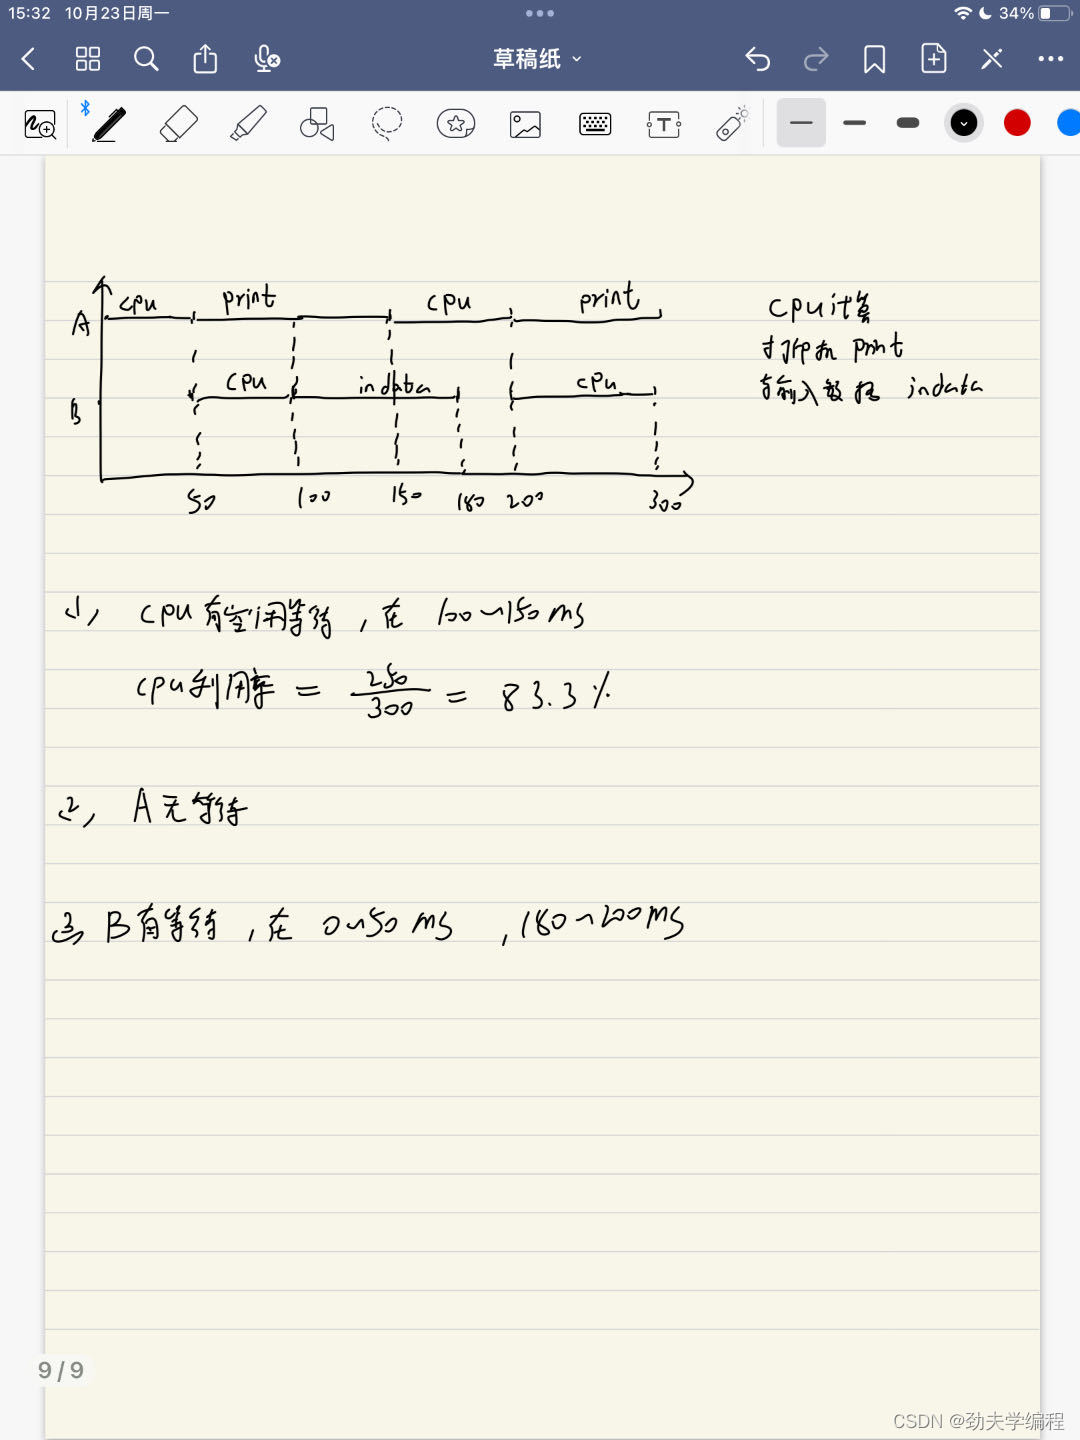 15:32 10月23日周一
34%
草稿纸
A cpu print cpu print
cpu计算
打印机 print
输入数据 indata
B cpu indata cpu
50 100 150 180 200 300
(1), cpu有空闲等待,在 100~150ms
cpu利用率 = 250/300 = 83.3%
(2), A无等待
(3) B有等待,在 0~50ms ,180~200ms
9/9
CSDN @劲夫学编程